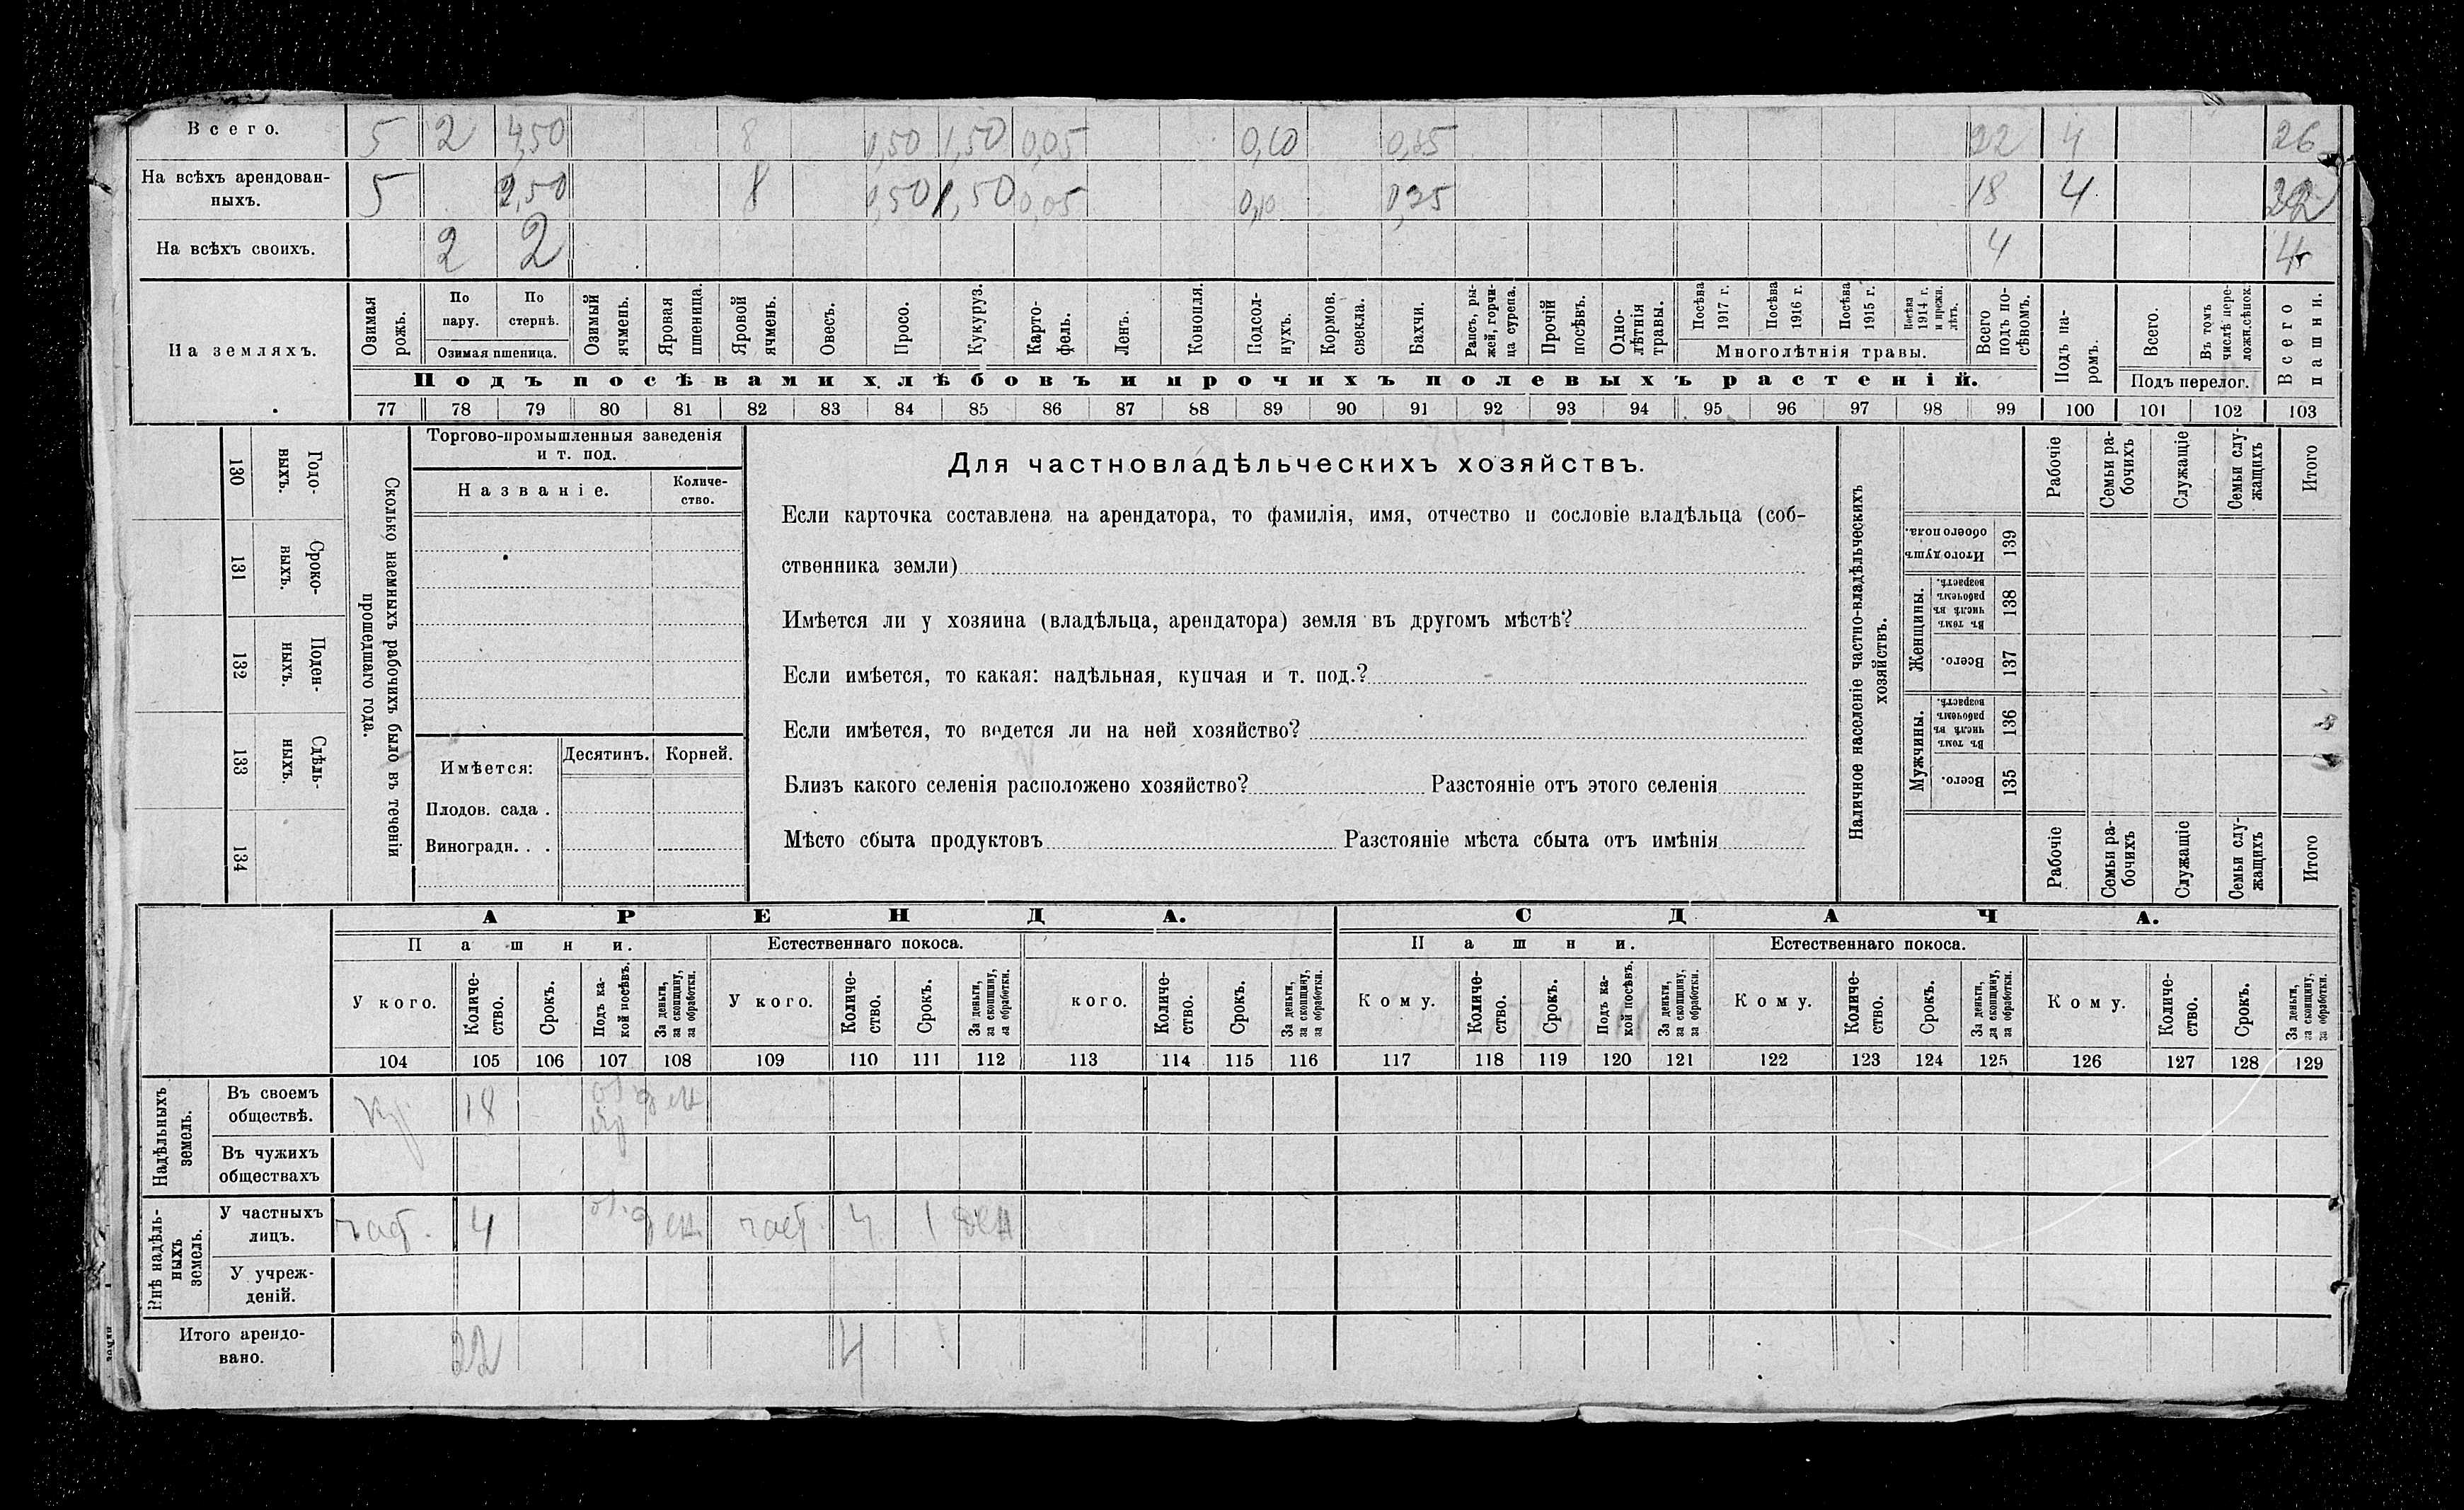 Всего. 5 2 4,50 8 0,50 1,50 0,05 0,10 22 4 26
На всѣхъ арендован-
ныхъ. 5 2,50 8 0,50 1,50 0,05 0,10 0,35 18 4 22
На всѣхъ своихъ. 2 2 4 4
На земляхъ.
Озимая рожь.
По пару.
По стернѣ.
Озимая пшеница.
Озимый ячмень.
Яровая пшеница.
Яровой ячмень.
Овесъ.
Просо.
Кукуруз.
Карто-
фель.
Ленъ.
Конопля.
Подсол-
нухъ.
Кормов. свекла.
Бахчи.
Рапсъ, ры-
жей, горчи-
ца сурепа.
Прочій посѣвъ.
Одно-
лѣтнія травы.
Посѣва 1917 г.
Посѣва 1916 г.
Посѣва 1915 г.
Посѣва 1914 г. и прежн. лѣтъ.
Многолѣтнія травы.
Всего подъ по-
сѣвомъ.
Подъ па-
ромъ.
Всего.
Въ томъ числѣ пере-
ложн.сѣнок.
Подъ перелог.
Всего пашни.
Подъ посѣвами хлѣбовъ и прочихъ полевыхъ растеній.
77 78 79 80 81 82 83 84 85 86 87 88 89 90 91 92 93 94 95 96 97 98 99 100 101 102 103
130 Годо-
ныхъ.
131 Сроко-
ныхъ.
132 Поден-
ныхъ.
133 Сдѣль-
ныхъ.
134
Сколько наемныхъ рабочихъ было въ теченіи
прошедшаго года.
Торгово-промышленныя заведенія
и т. под.
Названіе.
Количе-
ство.
Имѣется:
Десятинъ. Корней.
Плодов. сада .
Виноградн. . .
Для частновладѣльческихъ хозяйствъ.
Если карточка составлена на арендатора, то фамилія, имя, отчество и сословіе владѣльца (соб-
ственника земли)
Имѣется ли у хозяина (владѣльца, арендатора) земля въ другомъ мѣстѣ?
Если имѣется, то какая: надѣльная, купчая и т. под.?
Если имѣется, то ведется ли на ней хозяйство?
Близъ какого селенія расположено хозяйство? Разстояніе отъ этого селенія
Мѣсто сбыта продуктовъ Разстояніе мѣста сбыта отъ имѣнія
Наличное населеніе частно-владѣльческихъ
хозяйствъ.
Рабочіе
Семьи ра-
бочихъ
Служащіе
Семьи слу-
жащихъ
Итого
Итого душъ обоего пола. 139
Женщины.
Въ томъ числѣ въ рабочемъ возрастѣ. 138
Всего. 137
Мужчины.
Въ томъ числѣ въ рабочемъ возрастѣ. 136
Всего. 135
Рабочіе
Семьи ра-
бочихъ
Служащіе
Семьи слу-
жащихъ
Итого
АРЕНДА. СДАЧА.
Пашни. Естественнаго покоса. Пашни. Естественнаго покоса.
У кого.
Количе-
ство.
Срокъ.
Подъ ка-
кой посѣвъ.
За деньги, за скопщину, за обработки.
У кого.
Количе-
ство.
Срокъ.
За деньги, за скопщину, за обработки.
кого.
Количе-
ство.
Срокъ.
За деньги, за скопщину, за обработки.
Кому.
Количе-
ство.
Срокъ.
Подъ ка-
кой посѣвъ.
За деньги, за скопщину, за обработки.
Кому.
Количе-
ство.
Срокъ.
За деньги, за скопщину, за обработки.
Кому.
Количе-
ство.
Срокъ.
За деньги, за скопщину, за обработки.
104 105 106 107 108 109 110 111 112 113 114 115 116 117 118 119 120 121 122 123 124 125 126 127 128 129
Надѣльныхъ земель.
Въ своемъ
обществѣ. 18 ден
Въ чужихъ
обществахъ
Внѣ надѣль-
ныхъ земель.
У частныхъ
лицъ. част. 4 ден. част. 4 1 ден
У учреж-
деній.
Итого арендо-
вано. 22 4